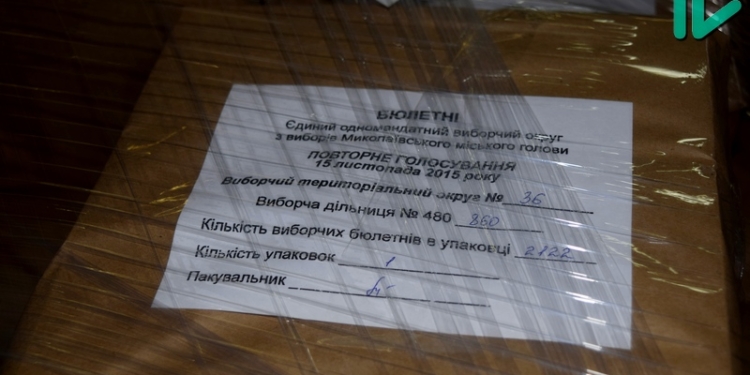 БЮЛЕТНІ
Єдиний одномандатний виборчий округ
з виборів Миколаївського міського голови
ПОВТОРНЕ ГОЛОСУВАННЯ
15 листопада 2015 року
Виборчий територіальний округ № 36
Виборча дільниця № 480 860
Кількість виборчих бюлетнів в упаковці 2122
Кількість упаковок 1
Пакувальник